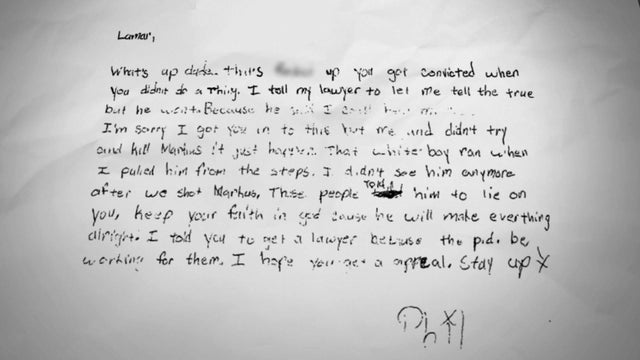 Lamar,
What's up dude. That's up you got convicted when
you didnt do a Thing. I tell my lawyer to let me tell the true
but he wont. Because he
I'm sorry I got you in to this but me and didn't try
and kill Markus it just happen. That white boy ran when
I pulled him from the steps. I didn't see him anymore
after we shot Markus. These people TOLD him to lie on
you, keep your faith in god cause he will make everthing
alright. I told you to get a lawyer because the p.d. be
working for them. I hope you get a appeal. Stay up